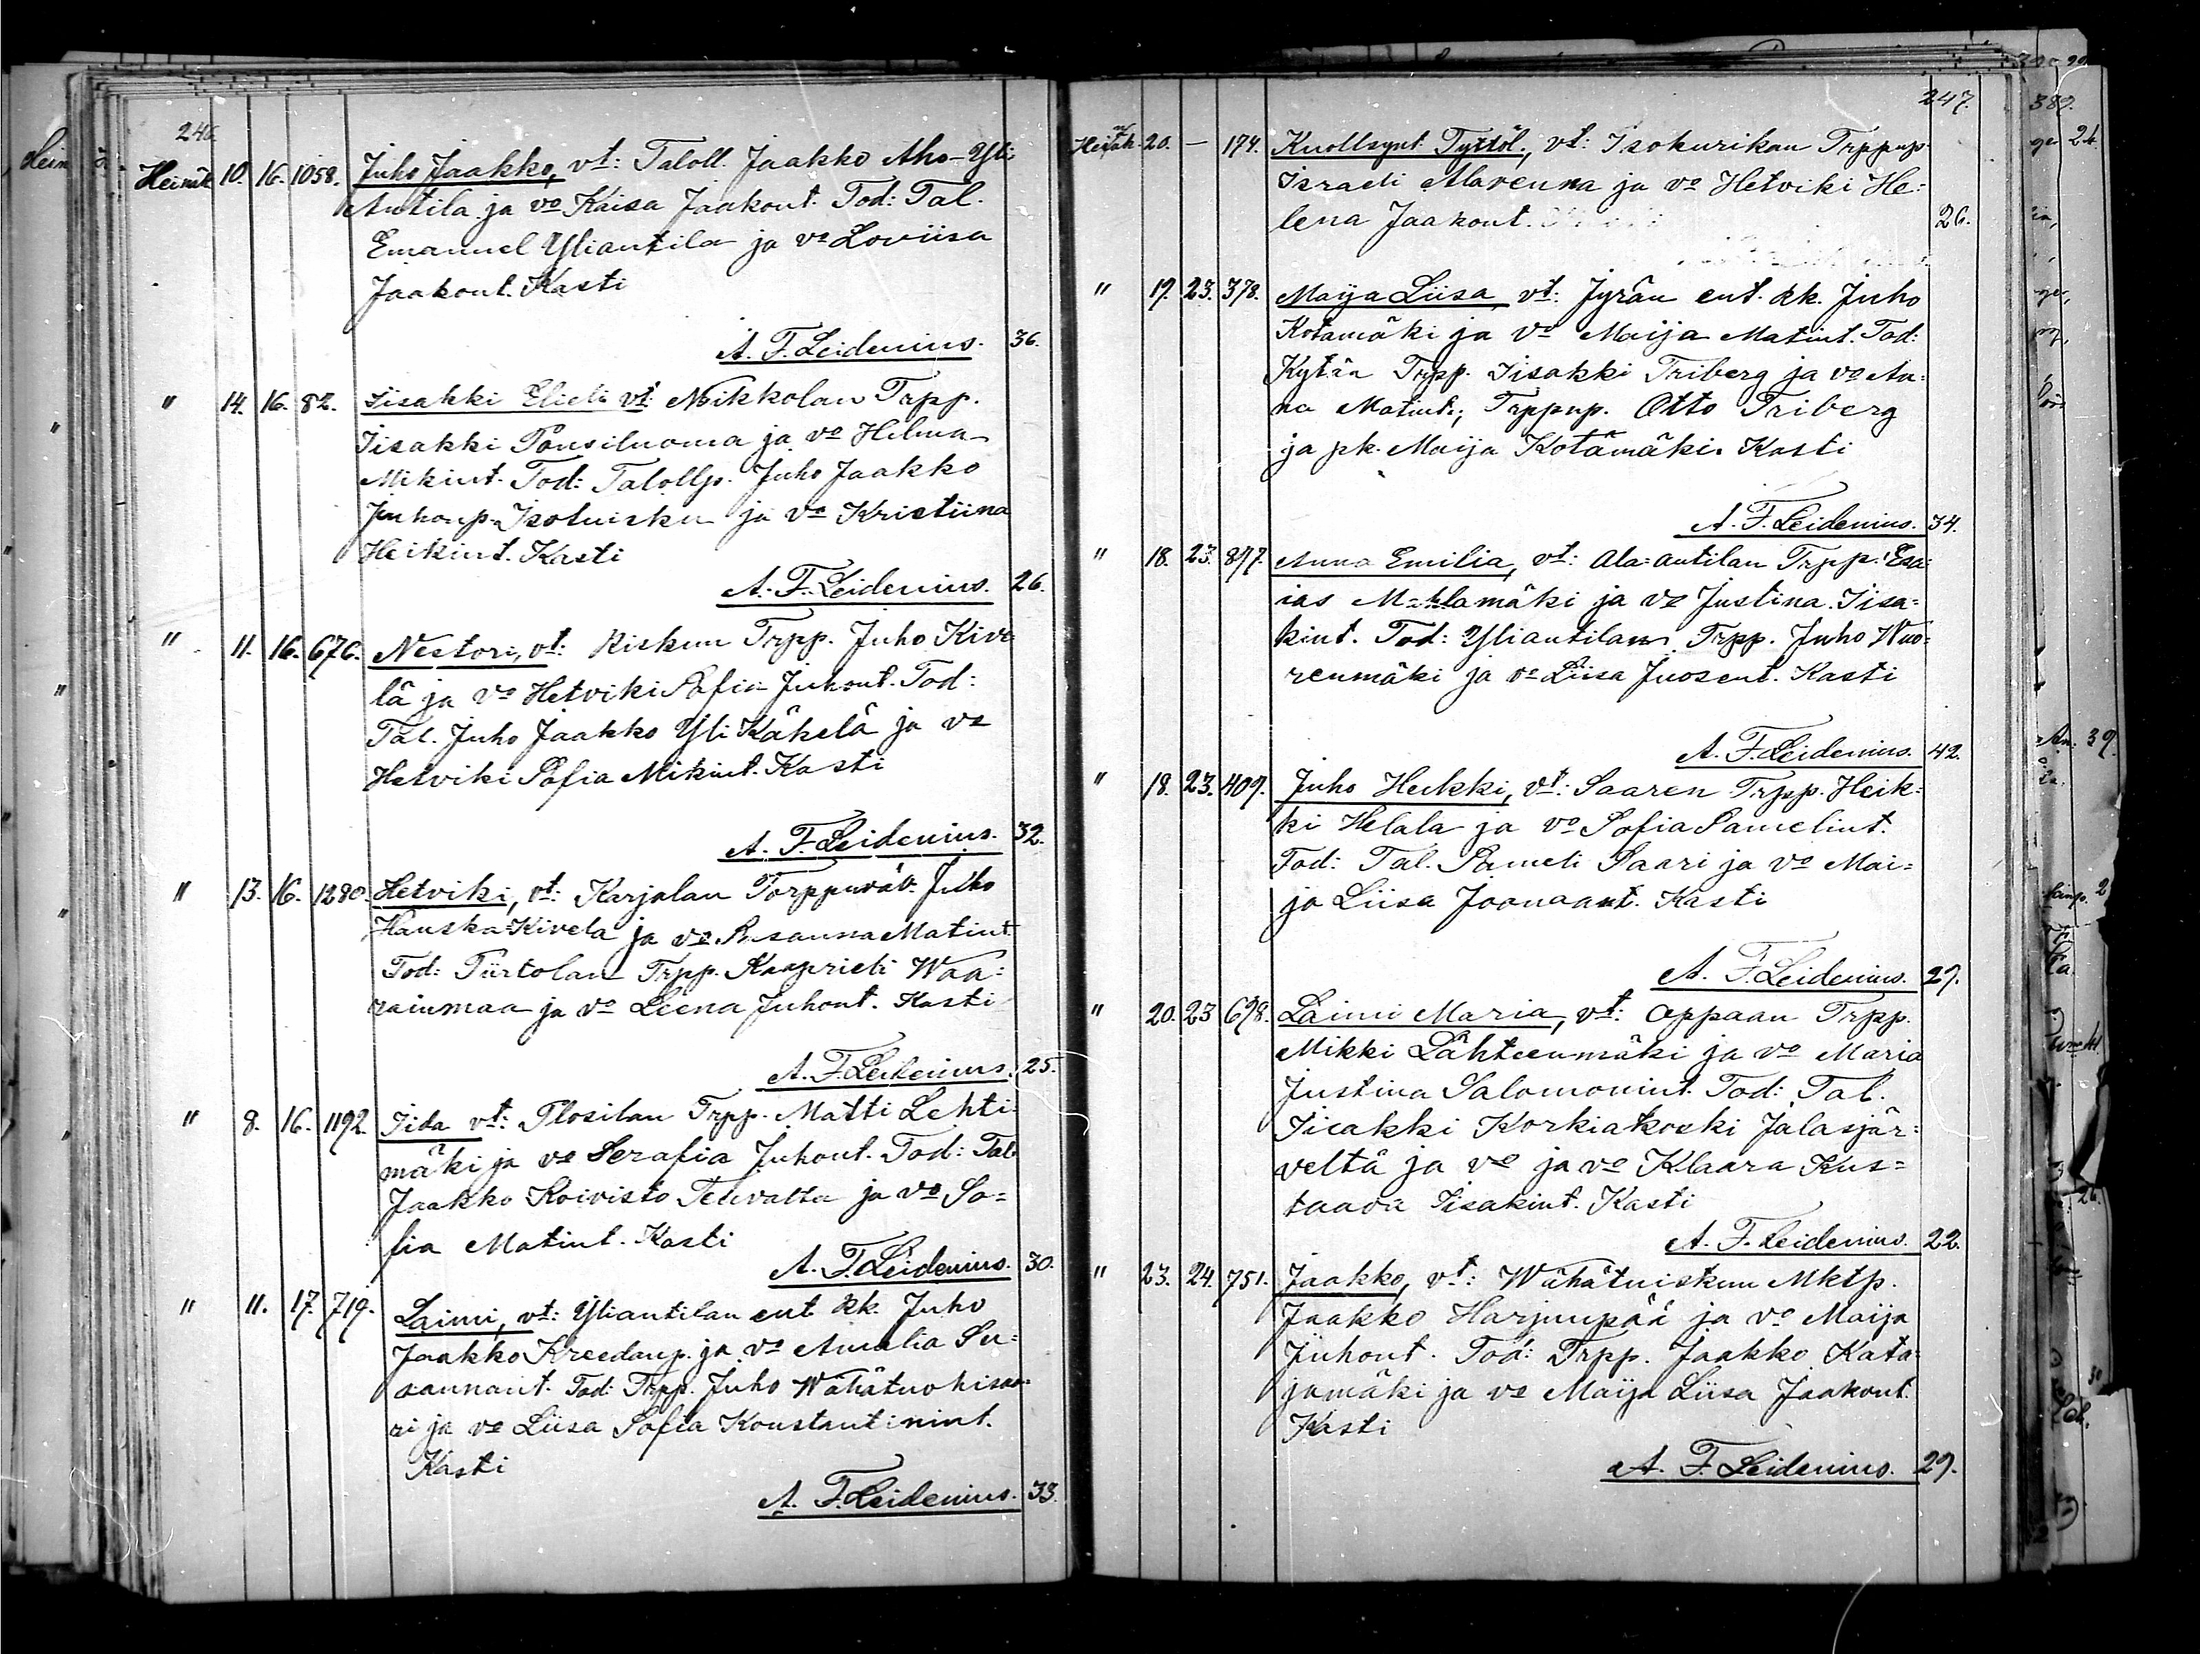 246.
Heinäk 10. 16. 1058. Juho Jaakko, vt: Taloll. Jaakko Aho-Yli
Antila ja vo Kaisa Jaakont. Tod: Tal.
Emanuel Yliantila ja vo Loviisa
Jaakont. Kasti
A. F. Leidenius. 36.
" 14. 16. 82. Iisakki Elieli vt: Mikkolan Trpp.
Iisakki Ponsiluoma ja vo Hilma
Mikint. Tod: Talollp. Juho Jaakko
Juhonp. Isotuisku ja vo Kristiina
Heikint. Kasti
A. F. Leidenius. 26.
" 11. 16. 676. Nestori, vt: Riskun Trpp. Juho Kive
lä ja vo Hetviki Sofia Juhont. Tod:
Tal. Juho Jaakko Yli Kähelä ja vo
Hetviki Sofia Mikint. Kasti
A. F. Leidenius. 32.
" 13. 16. 1280. Hetviki, vt: Karjalan Torppuväv. Juho
Hauska-Kivela ja vo Susanna Matint.
Tod: Piirtolan Trpp. Kaaprieli Waa=
rainmaa ja vo Leena Juhont. Kasti
A. F. Leidenius. 25.
" 8. 16. 1192. Iida vt: Plosilan Trpp. Matti Lehti
mäki ja vo Serafia Juhont. Tod: Tal.
Jaakko Koivisto Teuvalta ja vo So=
fia Matint. Kasti
A. F. Leidenius. 30.
" 11. 17. 719. Laimi, vt: Yliantilan ent kk. Juho
Jaakko Kreedanp. ja vo Amalia Su=
sannant. Tod: Trpp. Juho Wähätuohisaa-
ri ja vo Liisa Sofia Konstantinint.
Kasti
A. F. Leidenius. 33.
247.
Heinäk. 20. — 174. Kuollsynt. Tyttöl., vt: Isokurikan Trppnp.
Israeli Alarenna ja vo Hetviki He=
lena Jaakont.
26.
" 19. 23. 378. Maija Liisa, vt: Jyrän ent. kk. Juho
Kotamäki ja vo Maija Matint. Tod:
Kytän Trpp. Iisakki Triberg ja vo An=
na Matint.; Trppnp. Otto Triberg
ja pk. Maija Kotamäki. Kasti
A. F. Leidenius. 34.
" 18. 23. 877. Anna Emilia, vt: Ala=antilan Trpp. Esa=
ias ja vo Justina Iisa=
kint. Tod: Yliantilan Trpp. Juho Wuo=
renmäki ja vo Liisa Juosent. Kasti
A. F. Leidenius. 42.
" 18. 23. 409. Juho Heikki, vt: Saaren Trpp. Heik=
ki Helala ja vo Sofia Samelint.
Tod: Tal. Sameli Saari ja vo Mai=
ja Liisa Joonaant. Kasti
A. F. Leidenius. 29.
" 20. 23 698. Laimi Maria, vt: Oppaan Trpp.
Mikki Lähteenmäki ja vo Maria
Justina Salomonint. Tod: Tal.
Iisakki Korkiakoski Jalasjär=
veltä ja vo ja vo Klaara Kus=
taava Iisakint. Kasti
A. F. Leidenius. 22.
" 23. 24. 751. Jaakko, vt: Wähätuiskun Mktp.
Jaakko Harjunpää ja vo Maija
Juhont. Tod: Trpp. Jaakko Kata=
jamäki ja vo Maija Liisa Jaakont.
Kasti
A. F. Leidenius. 29.